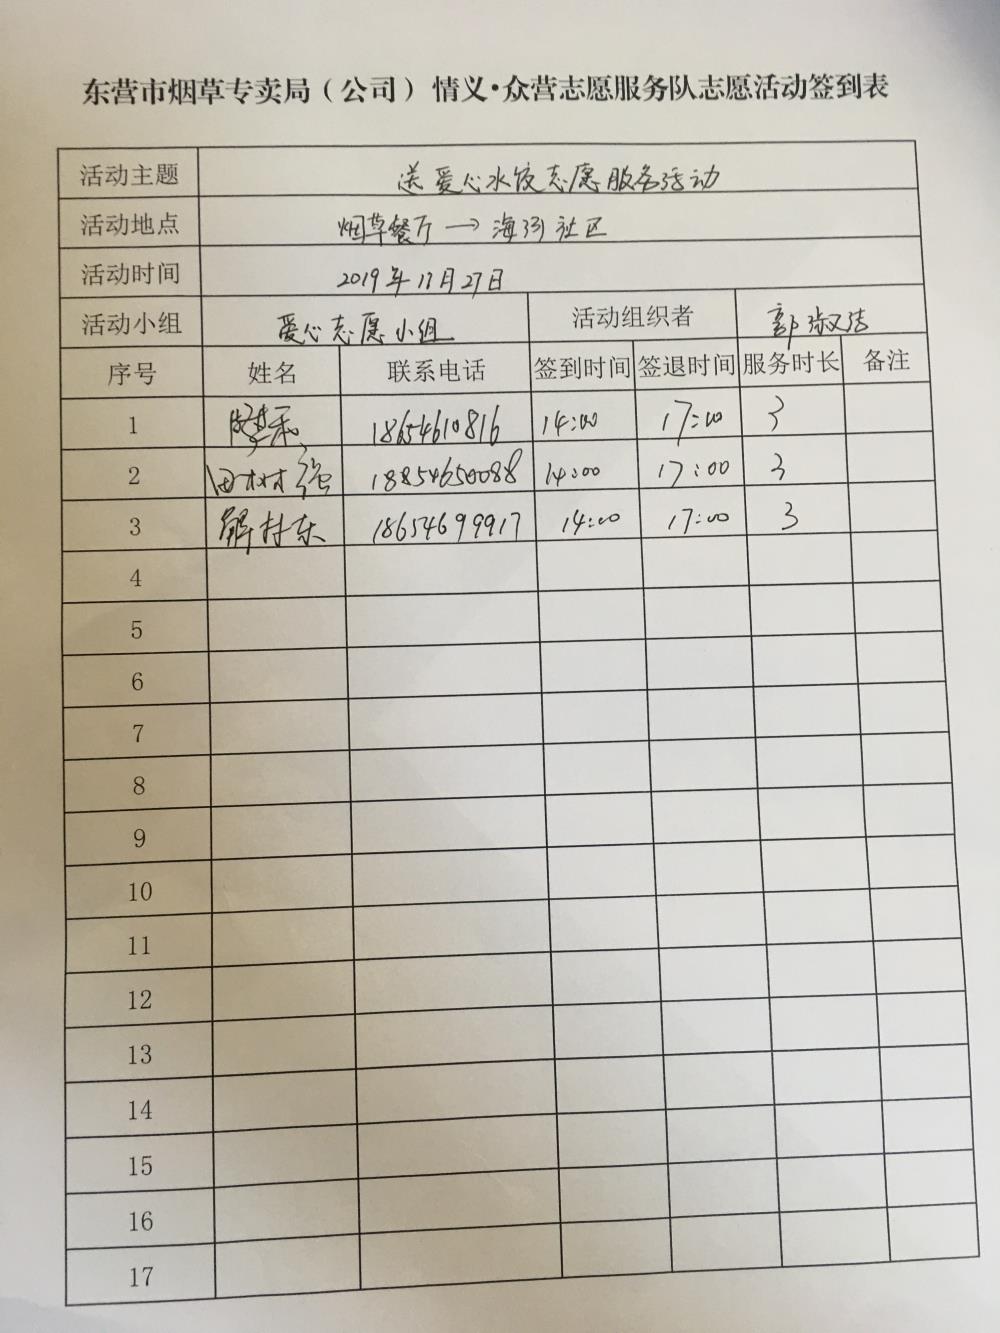 东营市烟草专卖局（公司）情义·众营志愿服务队志愿活动签到表
活动主题 送爱心水饺志愿服务活动
活动地点 烟草餐厅→海河社区
活动时间 2019年11月27日
活动小组 爱心志愿小组 活动组织者 郭淑洁
序号 姓名 联系电话 签到时间 签退时间 服务时长 备注
1 18654610816 14:00 17:00 3
2 田树强 18854650088 14:00 17:00 3
3 解持东 18654699917 14:00 17:00 3
4
5
6
7
8
9
10
11
12
13
14
15
16
17